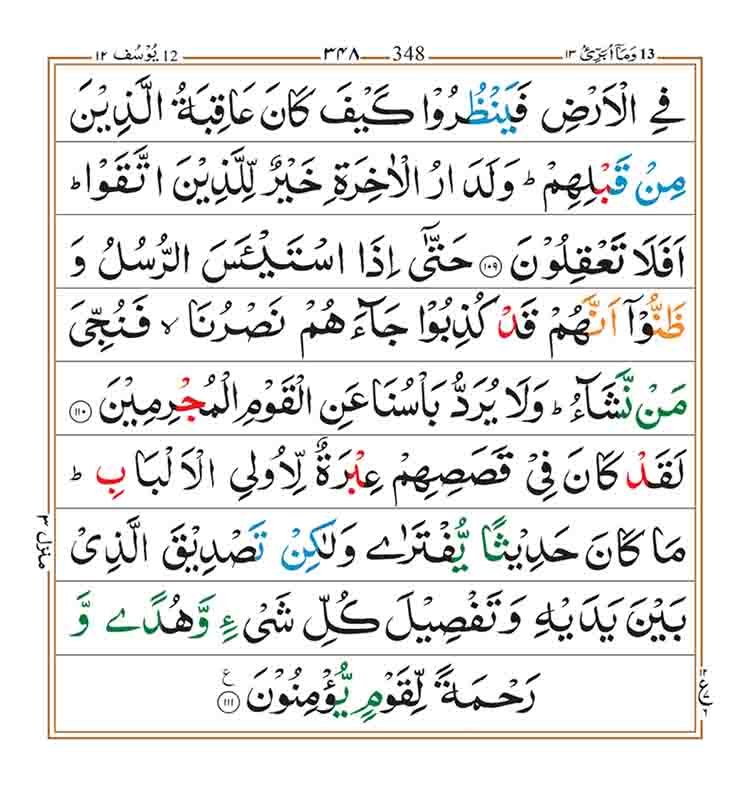 13 وَمَآ اُبَرِّئُ ١٣ 348 ٣٤٨ 12 يُوْسُف ١٢
فِي الْاَرْضِ فَيَنْظُرُوْا كَيْفَ كَانَ عَاقِبَةُ الَّذِيْنَ
مِنْ قَبْلِهِمْ ؕ وَلَدَارُ الْاٰخِرَةِ خَيْرٌ لِّلَّذِيْنَ اتَّقَوْا ؕ
اَفَلَا تَعْقِلُوْنَ ١٠٩ حَتّٰۤى اِذَا اسْتَيْـَٔسَ الرُّسُلُ وَ
ظَنُّوْۤا اَنَّهُمْ قَدْ كُذِبُوْا جَآءَهُمْ نَصْرُنَا ۙ فَنُجِّيَ
مَنْ نَّشَآءُ ؕ وَلَا يُرَدُّ بَاْسُنَا عَنِ الْقَوْمِ الْمُجْرِمِيْنَ ١١٠
لَقَدْ كَانَ فِيْ قَصَصِهِمْ عِبْرَةٌ لِّاُولِي الْاَلْبَابِ ؕ
مَا كَانَ حَدِيْثًا يُّفْتَرٰى وَلٰكِنْ تَصْدِيْقَ الَّذِيْ
بَيْنَ يَدَيْهِ وَتَفْصِيْلَ كُلِّ شَيْءٍ وَّهُدًى وَّ
رَحْمَةً لِّقَوْمٍ يُّؤْمِنُوْنَ ١١١ ع
منزل ٣
١٢
ع
٦